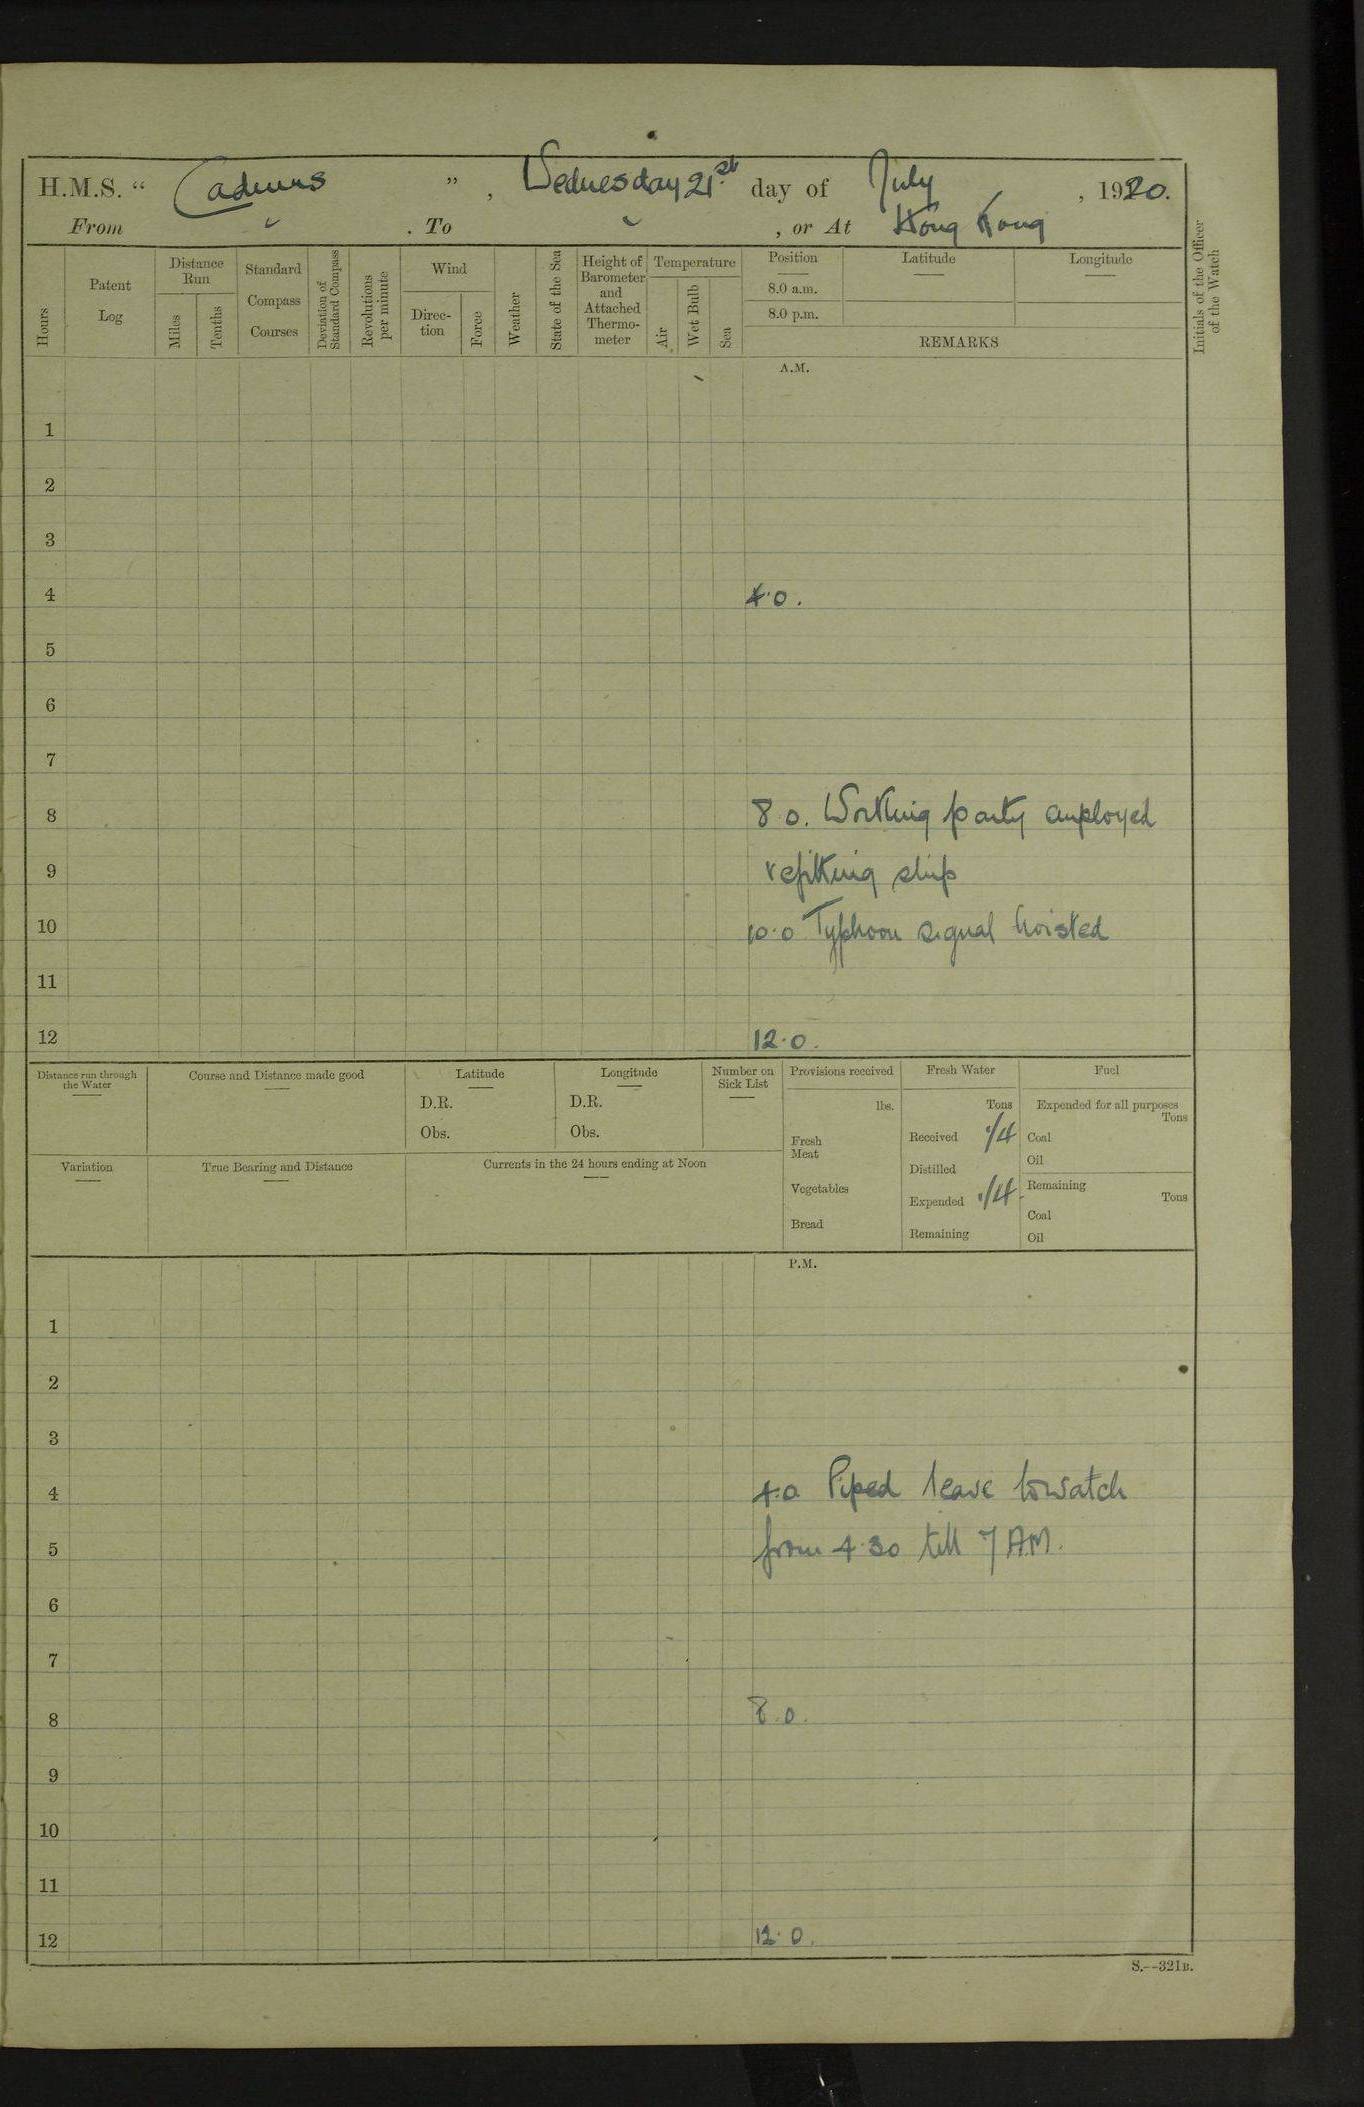 H.M.S. “ Cadmus ” , Wednesday 21st day of July , 1920.
From . To , or At Hong Kong
Hours
Patent Log
Distance Run
Miles
Tenths
Standard Compass Courses
Deviation of Standard Compass
Revolutions per minute
Wind
Direc-tion
Force
Weather
State of the Sea
Height of Barometer and Attached Thermo-meter
Temperature
Air
Wet Bulb
Sea
Position
Latitude
Longitude
8.0 a.m.
8.0 p.m.
REMARKS
Initials of the Officer of the Watch
A.M.
1
2
3
4 4.0.
5
6
7
8 8.0. Working party employed
9 refitting ship
10 10.0 Typhoon signal hoisted
11
12 12.0.
Distance run through the Water
Course and Distance made good
Latitude
D.R.
Obs.
Longitude
D.R.
Obs.
Number on Sick List
Variation
True Bearing and Distance
Currents in the 24 hours ending at Noon
Provisions received
lbs.
Fresh Meat
Vegetables
Bread
Fresh Water
Tons
Received 1/4
Distilled
Expended 1/4
Remaining
Fuel
Expended for all purposes
Tons
Coal
Oil
Remaining
Tons
Coal
Oil
P.M.
1
2
3
4 4.0 Piped leave to watch
5 from 4.30 till 7 AM.
6
7
8 8.0.
9
10
11
12 12.0.
S.--321B.